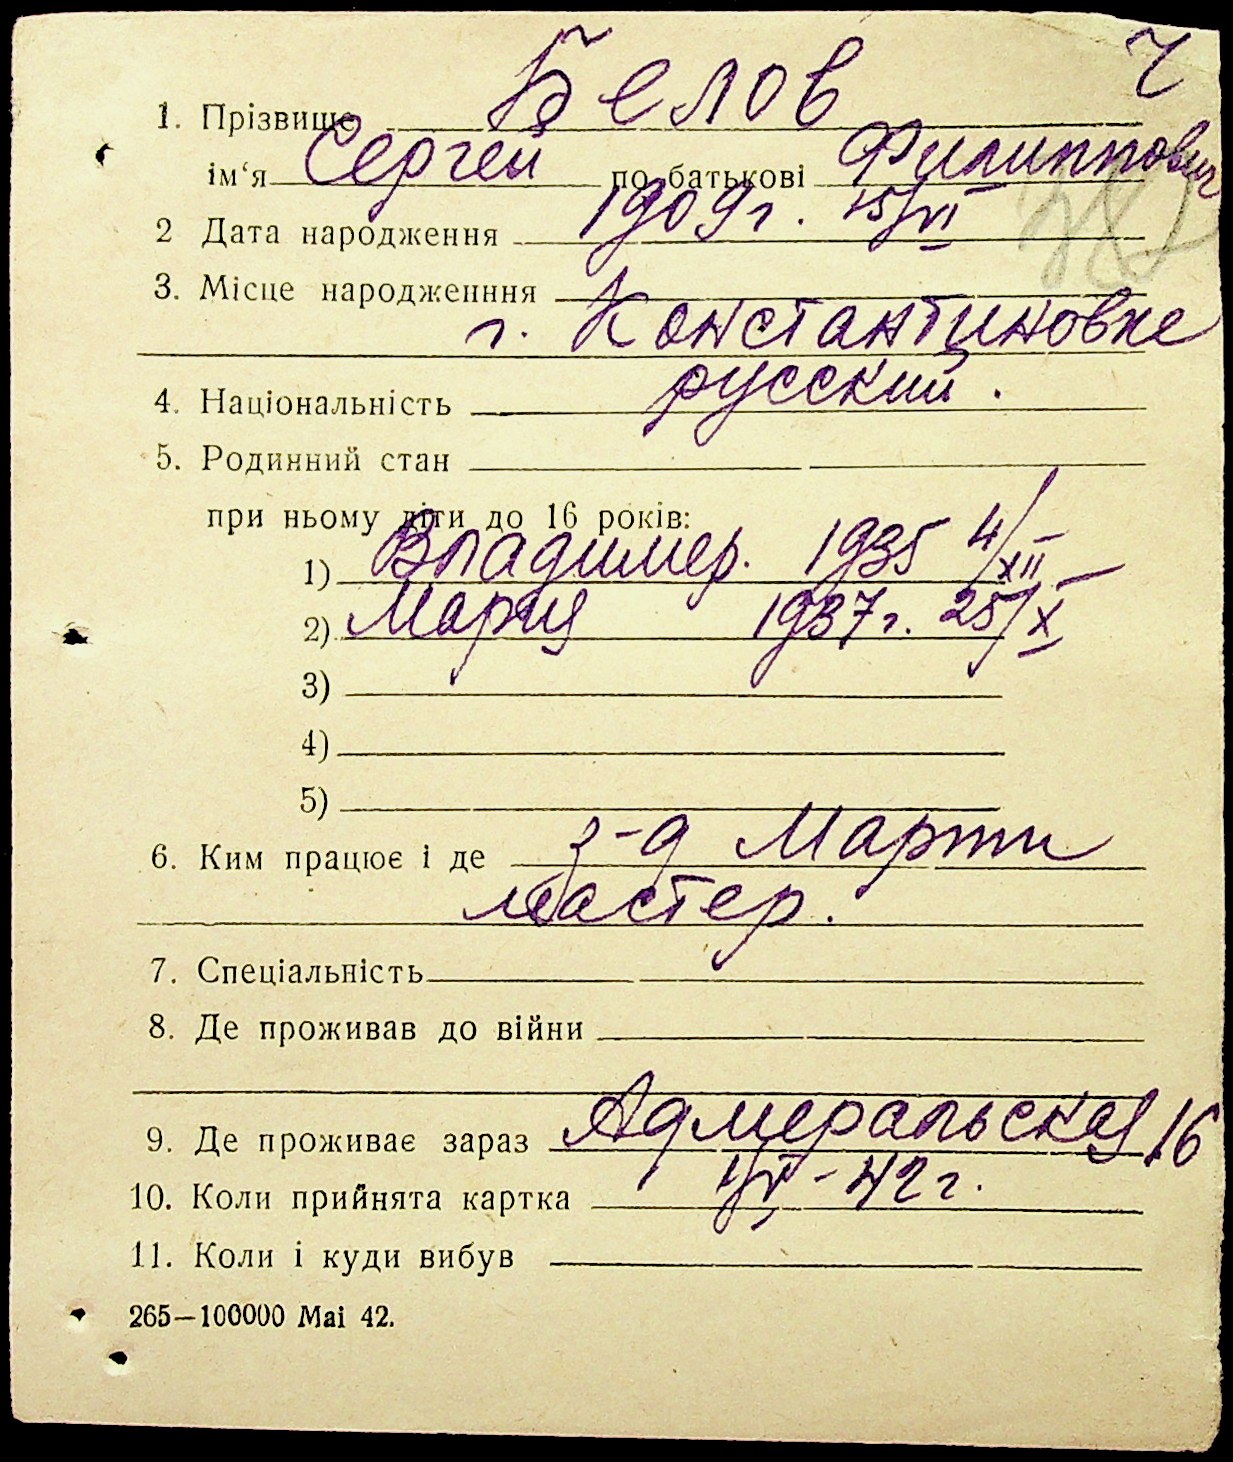 Ч
1. Прізвище Белов
ім‘я Сергей по батькові Филиппович
2 Дата народження 1909 г. 15/VI
3. Місце народженння
г. Константиновке
4. Національність русский.
5. Родинний стан
при ньому діти до 16 років:
1) Владимер. 1935 4/XII
2) Мария 1937 г. 25/X
3)
4)
5)
6. Ким працює і де з-д Марти
мастер.
7. Спеціальність
8. Де проживав до війни
9. Де проживає зараз Адмеральская 16
10. Коли прийнята картка 1/VI - 42 г.
11. Коли і куди вибув
265—100000 Маі 42.